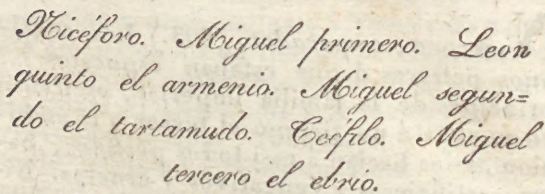 Nicéforo. Miguel primero. Leon
quinto el armenio. Miguel segun=
do el tartamudo. Teofilo. Miguel
tercero el ebrio.